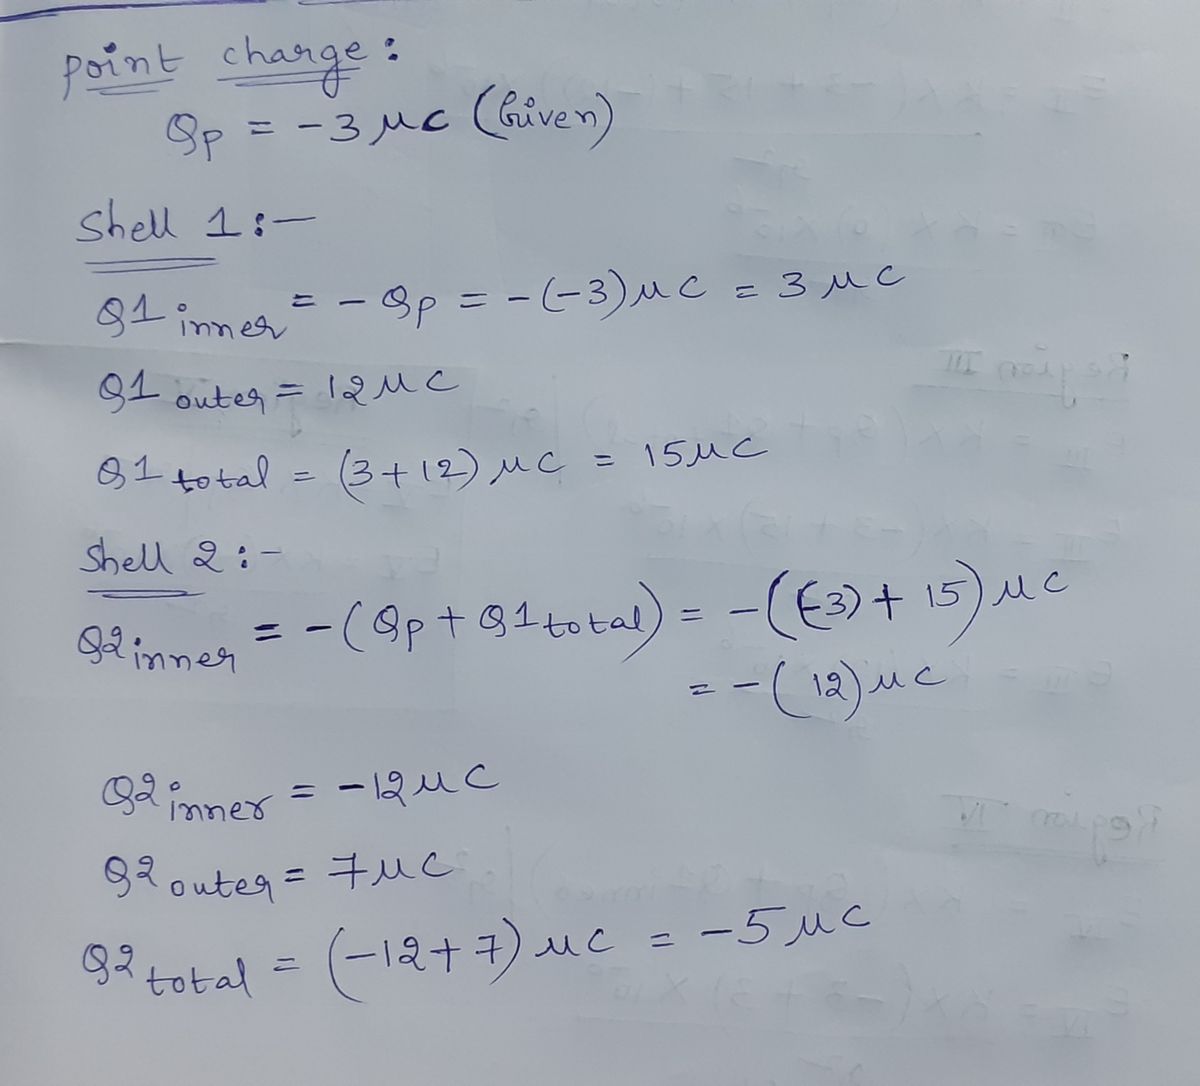 point charge:
Qp = -3 μc (Given)
Shell 1:-
Q1 inner = - Qp = -(-3) μc = 3 μc
Q1 outer = 12 μc
Q1 total = (3+12) μc = 15 μc
Shell 2:-
Q2 inner = -(Qp + Q1 total) = -((-3) + 15) μc
= -(12) μc
Q2 inner = -12 μc
Q2 outer = 7 μc
Q2 total = (-12+7) μc = -5 μc